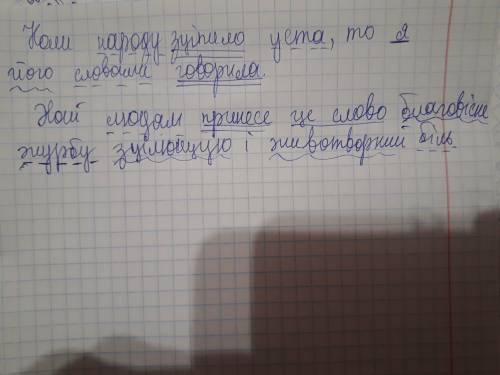 Коли народу зціпило уста, то я
його словами говорила.
Хай людям принесе це слово благовісне
журбу зцілющую і животворний біль